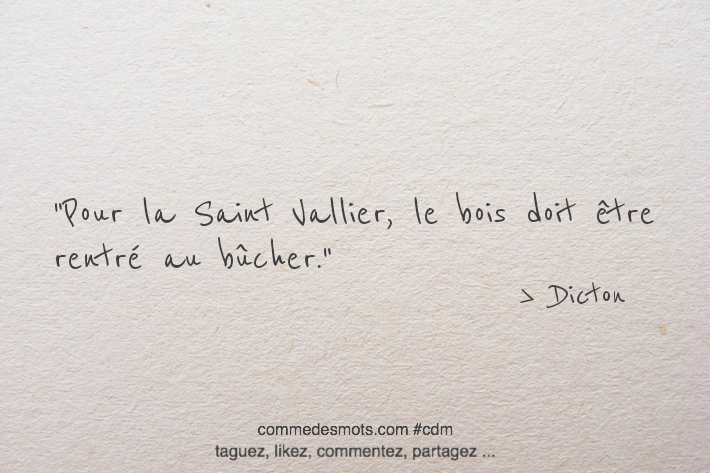 "Pour la Saint Vallier, le bois doit être
rentré au bûcher."
> Dicton
commedesmots.com #cdm
taguez, likez, commentez, partagez ...